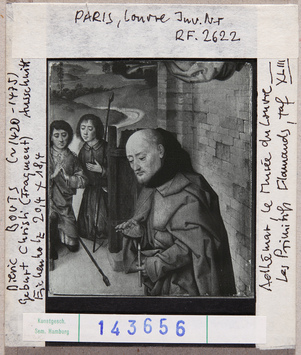 PARIS, Louvre Inv. Nr
RF. 2622
Dieric BOUTS (v 1420-1475)
Geburt Christi (Fragment) Ausschnitt
Eichenholz 20,4 x 18,4
Adhémar Le Musée du Louvre
Les Primitifs Flamands, Taf XLIII
Kunstgesch.
Sem. Hamburg
143656